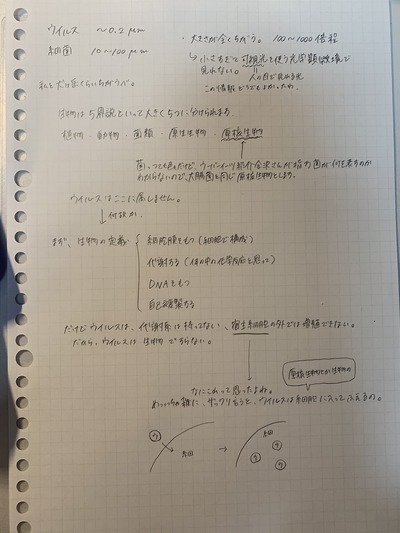 ウイルス ～0.2μm
細菌 10～100μm
・大きさが全くちがう。 100～1000倍程
↳小さすぎて可視光を使う光学顕微鏡で見れない。
人の目で見れる光
この情報どうでもよかったわ。
私と犬は違くらいちがうべ。
生物は5界説といって大きく5つに分けられます。
植物・動物・菌類・原生生物・原核生物
菌っつても色々だけど、ウーバーイーツ
わからないので、大腸菌と同じ原核生物とします。
ウイルスはここに属しません。
↓何故か。
まず、生物の定義
細胞膜をもつ(細胞で構成)
代謝する(体の中の化学反応と思って)
DNAをもつ
自己複製する
だけどウイルスは、代謝系は持ってない、宿主細胞の外では増殖できない。
だから、ウイルスは生物ですらない。
なにこれって思ったよね。
原核生物とか生物の
めっちゃ雑に、ザックリ言うと、ウイルスは細胞に入ってふえるの。
ウ 細胞 → 細胞 ウ ウ ウ